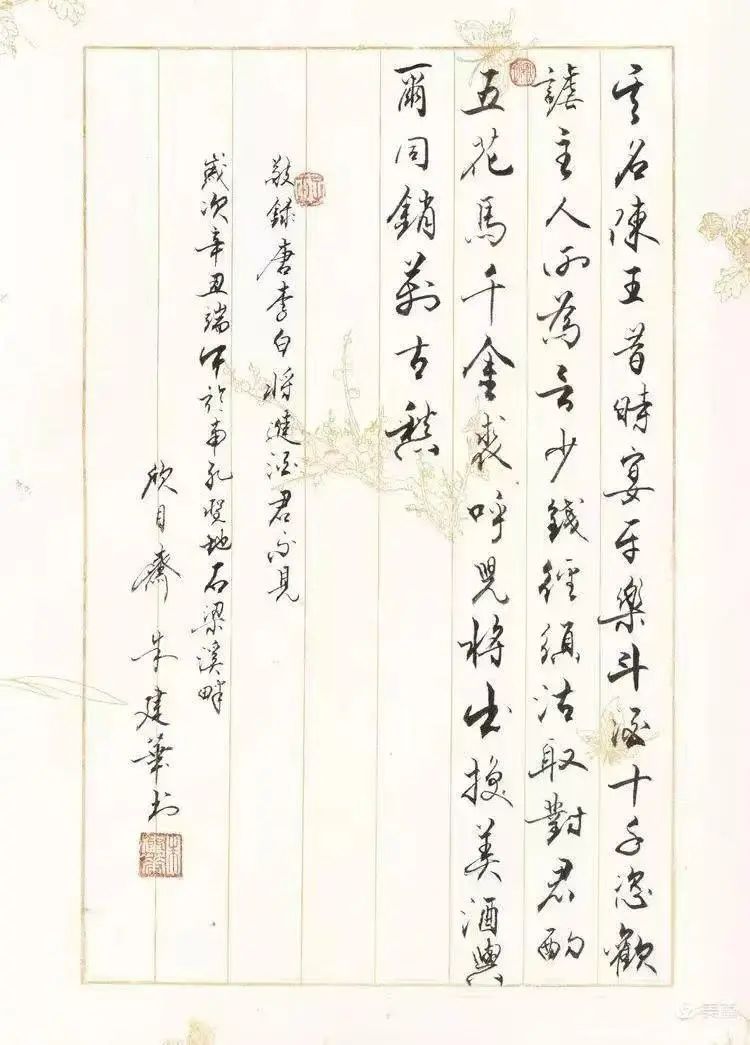 其名陳王昔時宴平樂斗酒十千恣歡
謔主人何為言少錢徑須沽取對君酌
五花馬千金裘呼兒將出換美酒與
爾同銷萬古愁
敬録唐李白將進酒君不見
歲次辛丑端午於南孔聖地石梁溪畔
欣目齋朱建華书
美篇